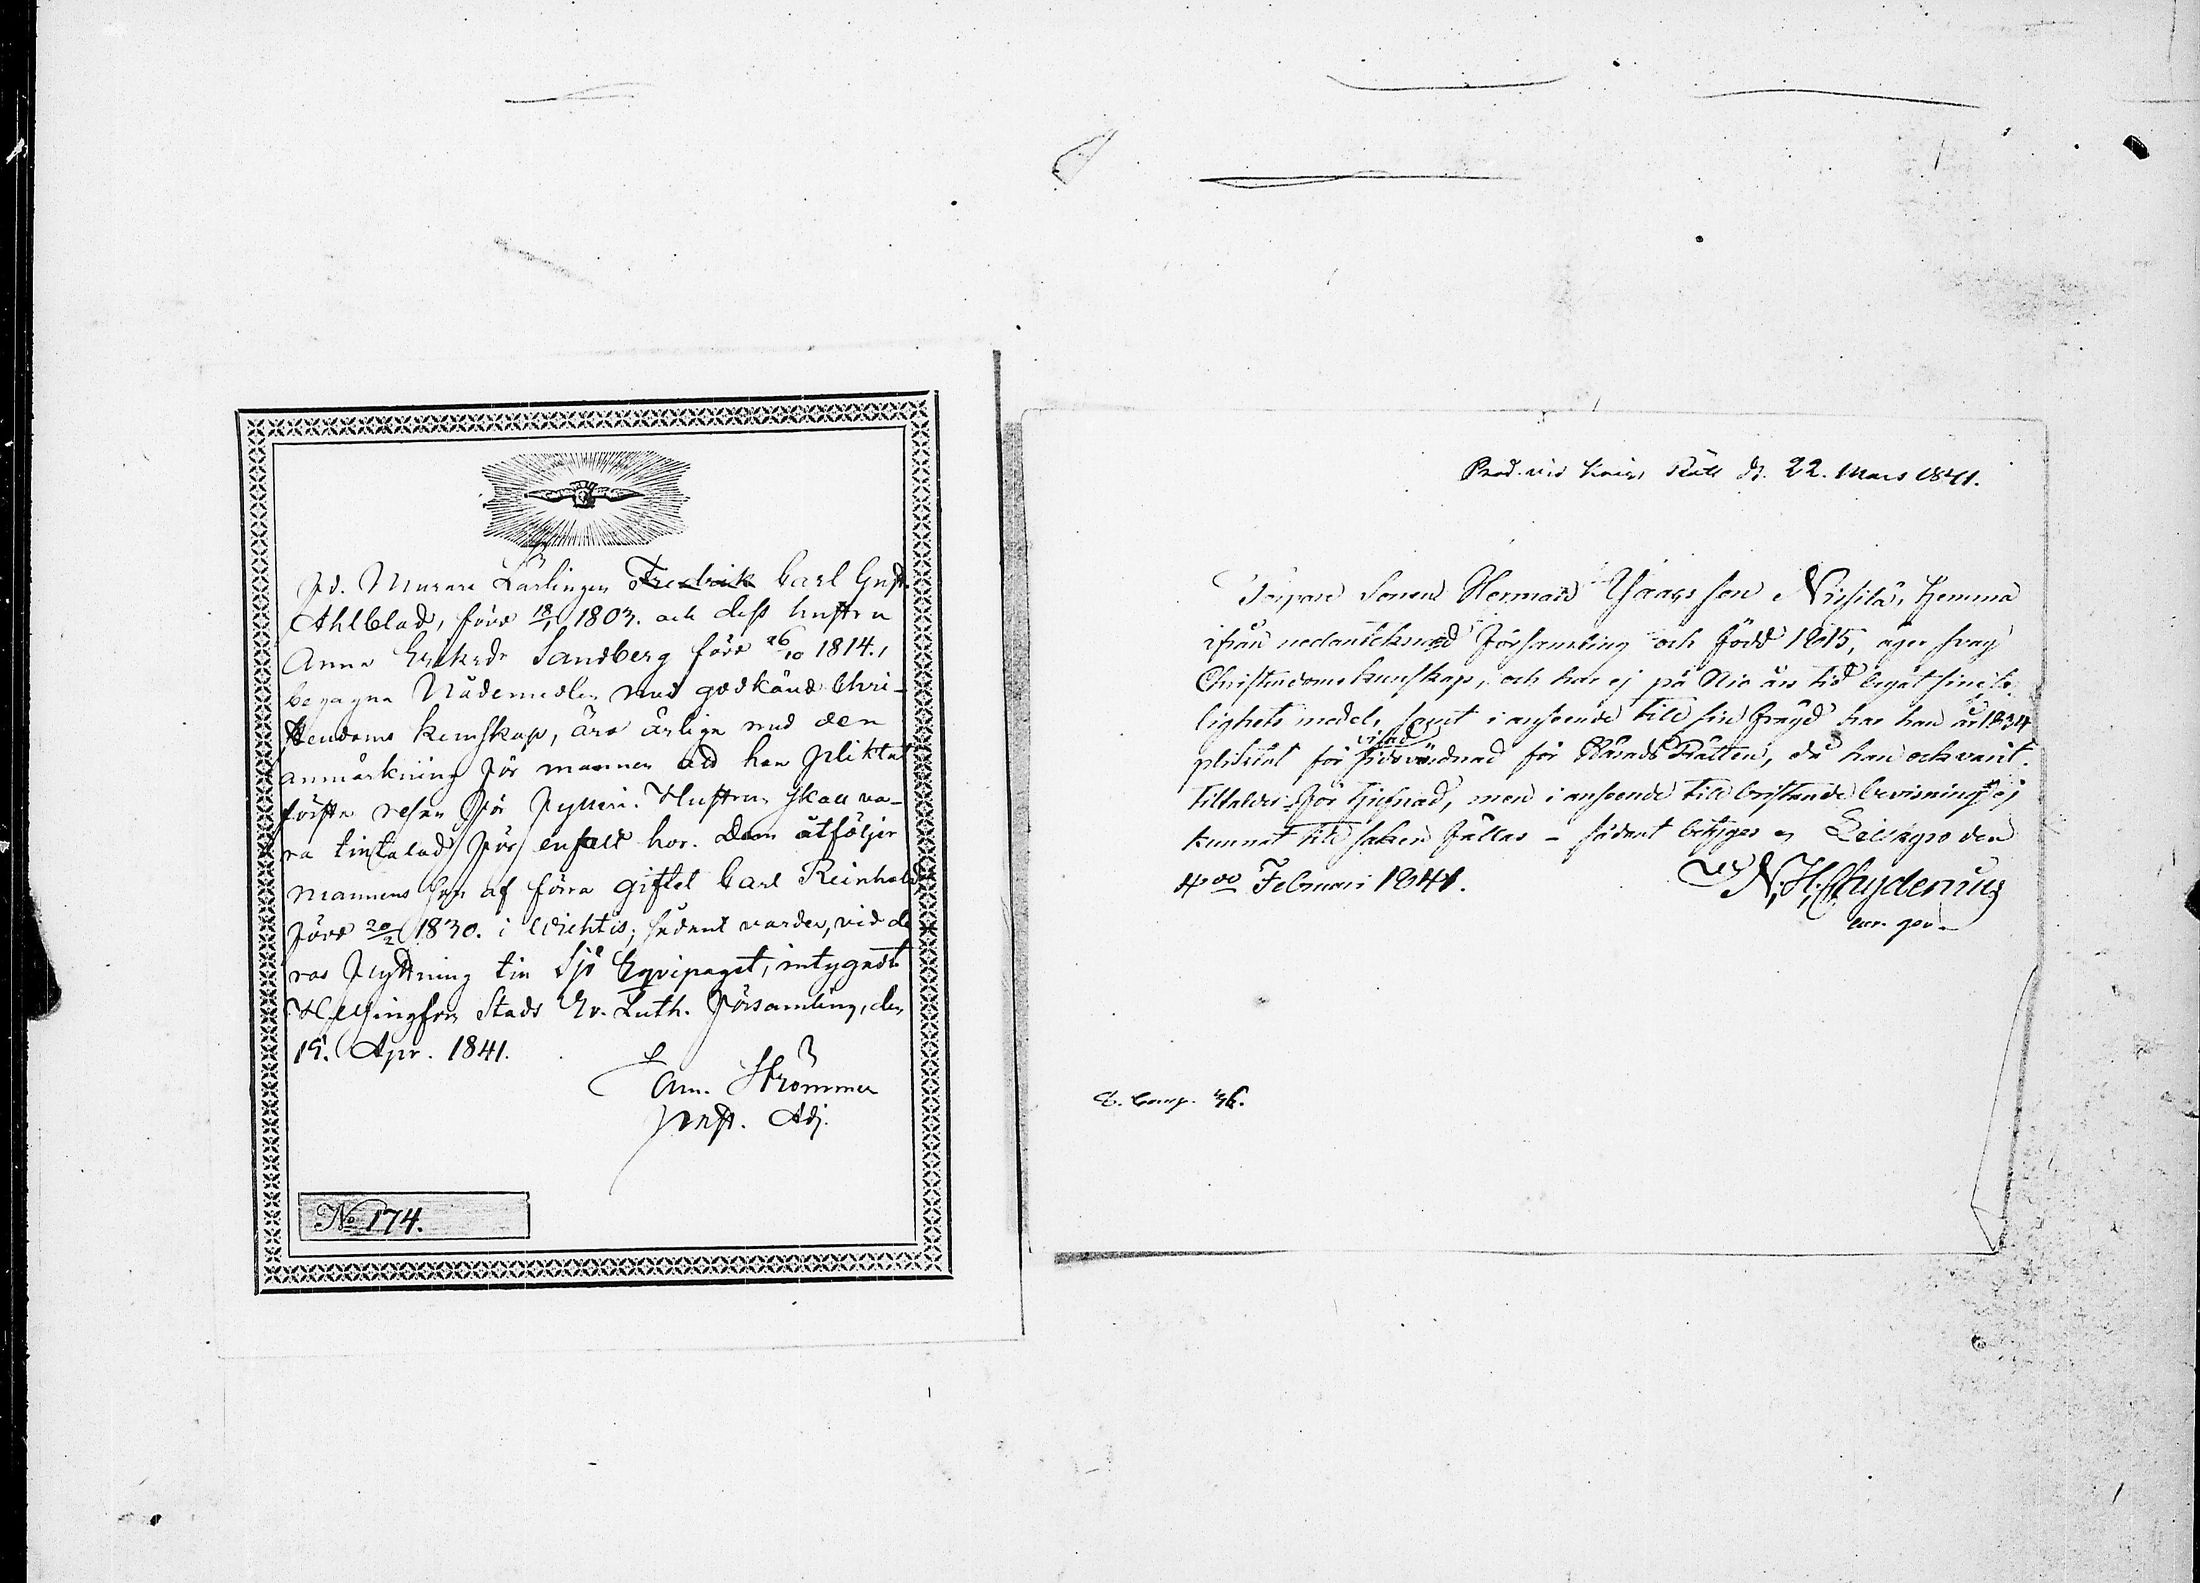 fd. Murare Lärlingen Fredrik Carl Gust.
Ahlblad, född 18/1 1803. och dess hustru
Anna Eriksdr Sandberg född 26/10 1814.,
begagna Nådemedlen med godkänd Chri-
stendoms kunskap, äro ärliga med den
anmärkning för mannen att han pliktat
första resan för fylleri. Hustrun skall va-
ra tilltalad för enfalt hor. Dem åtföljer
mannens son af förra giftet Carl Reinhold
född 20/2 1830. i Wichtis; sådant varder, vid de
ras flyttning till Sjö Equipaget, intygadt
Helsingfors Stads Ev. Luth. Församling, den
19. Apr. 1841.
Am. Strömmer
Past. Adj.
No 174.
Prod. vid Krigs Rätt d. 22. Mars 1841.
Torpare Sonen Herman Isaacsson Nissilä, hemma
ifrån nedanteknad församling och född 1815, äger svag
Christendomskunskap, och har ej på Nio års tid begåt sine sa-
lighets medel, samt i anseende till sin frägd har han år 1834
pliktat för visad vådnad för HäradsRätten, då han ock varit
tilltalder för tjufnad, men i anseende till bristande bevisning ej
kunnat till saken fällas – sådant betyges af Lillkyro den
4de Februari 1841.
N. H. Chydenius
C. Comp. 36.